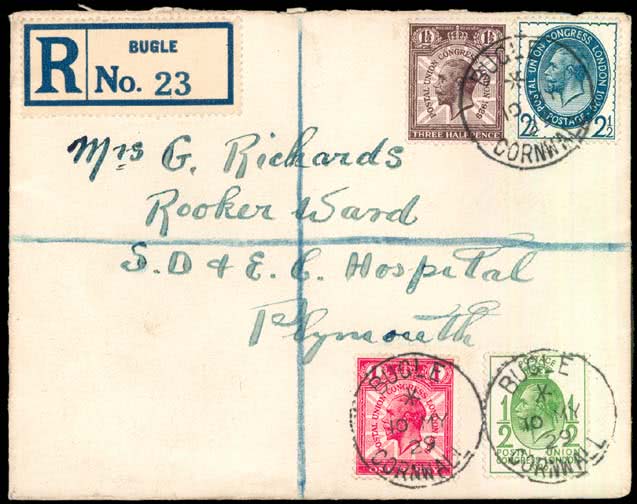 R
BUGLE
No. 23
1½ 1½
POSTAL UNION CONGRESS LONDON 1929
THREE HALFPENCE
POSTAL UNION CONGRESS LONDON 1929
2½ POSTAGE 2½
BUGLE
CORNWALL
Mrs G. Richards
Rooker Ward
S.D & E.C. Hospital
Plymouth
POSTAL UNION CONGRESS LONDON
BUGLE
10 MY
29
CORNWALL
1/2 1/2
POSTAL UNION
CONGRESS LONDON
BUGLE
10 MY
29
CORNWALL